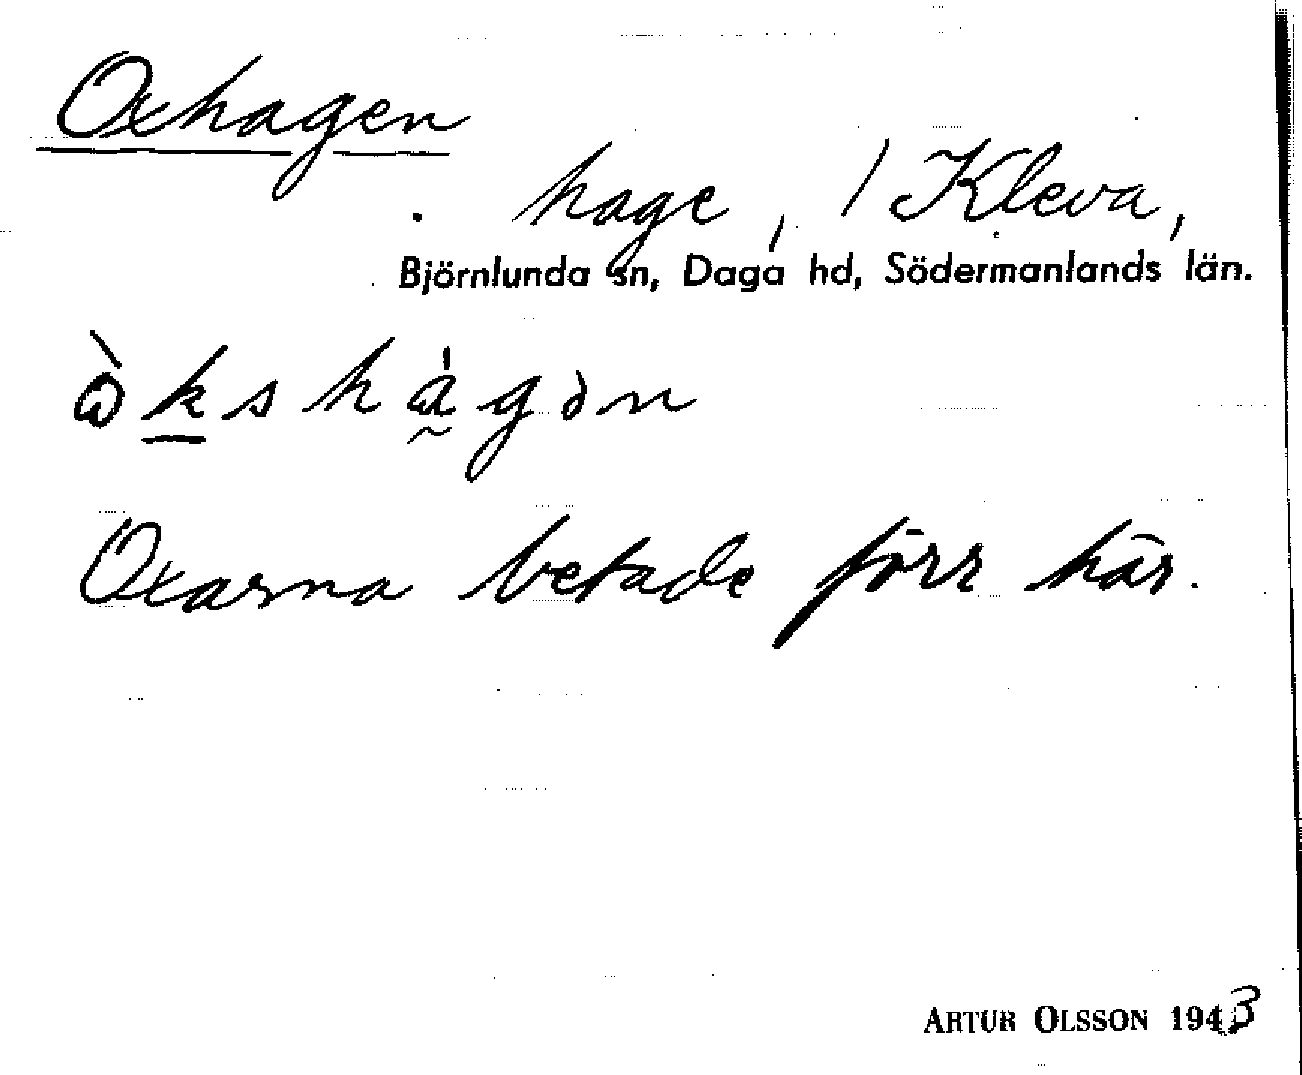 Oxhagen
hage, / Kleva,
Björnlunda sn, Daga hd, Södermanlands län.
Oxarna betade förr här.
ARTUR OLSSON 1943